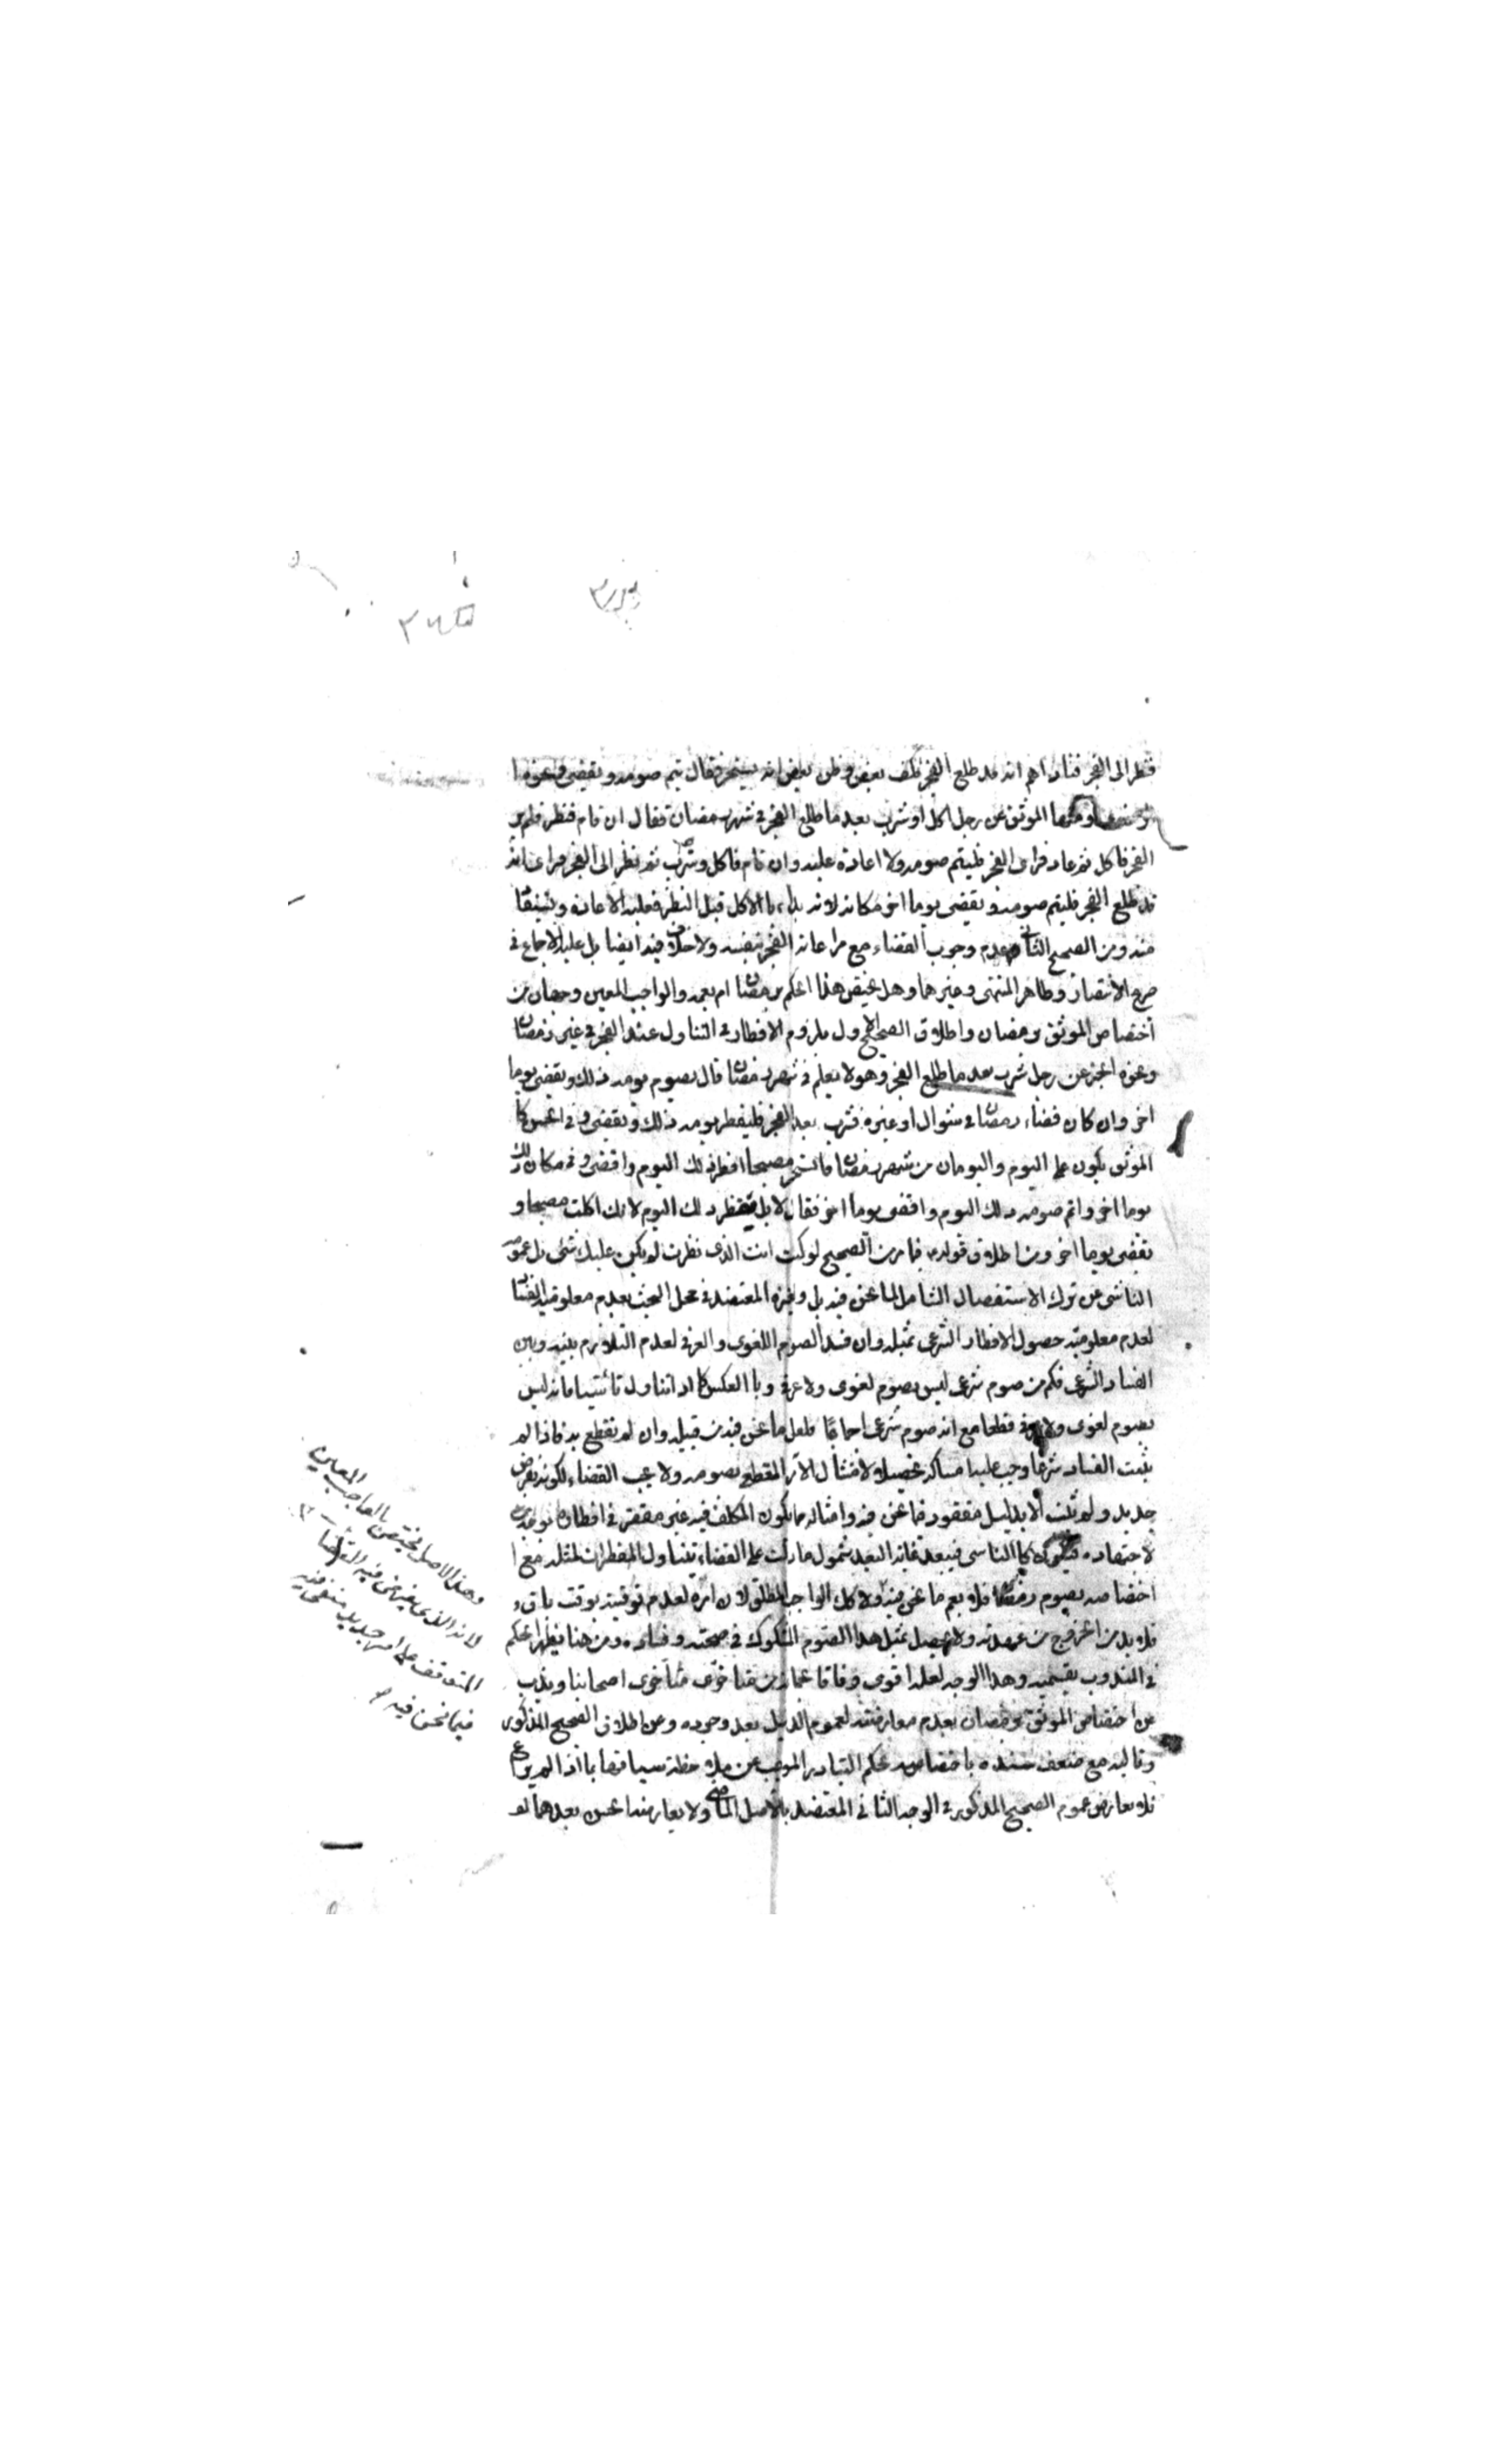 فنظر الى الفجر فناداهم انه قد طلع الفجر فكف بعض وظن بعض انه يسخر فقال يتم صومه ويقضى ونحوه ا
ومنها الموثق عن رجل اكل او شرب بعد ما طلع الفجر فى شهر رمضان فقال ان قام فنظر فلم ير
الفجر فاكل ثم عاد فراى الفجر فليتم صومه ولا اعادة عليه وان قام فاكل وشرب ثم نظر الى الفجر فراى انه
قد طلع الفجر فليتم صومه ويقضى يوما اخر مكانه لانه بدء بالاكل قبل النظر فعليه الاعادة
منه ومن الصحيح الثانى عدم وجوب القضاء مع مراعاته الفجر بنفسه ولا خلاف فيه ايضا بل عليه الاجماع فى
صريح الانتصار وظاهر المنتهى وغيرهما وهل يختص هذا الحكم برمضان ام يعمه والواجب المعين وجهان من
اختصاص الموثق برمضان واطلاق الصحيح الاول بلزوم الافطار فى التناول عند الفجر فى غير رمضان
ونحوه الخبر عن رجل شرب بعد ما طلع الفجر وهو لا يعلم فى شهر رمضان قال يصوم يومه ذلك ويقضى يوما
اخر وان كان قضاء رمضان فى شوال او غيره فشرب بعد الفجر فليفطر يومه ذلك ويقضى وفى الحسن كا
الموثق يكون على اليوم واليومان من شهر رمضان فاتسحر مصبحا افطر ذلك اليوم واقضى فى مكان ذلك
يوما اخر واتم صومه ذلك اليوم واقضى يوما اخر فقال لا بل تفطر ذلك اليوم لانك اكلت مصبحا و
تقضى يوما اخر ومن اطلاق قوله فيما مر من الصحيح لو كنت انت الذى نظرت لم يكن عليك شئ بل عمومه
الناشى عن ترك الاستفصال الشامل لما نحن فيه بل وغيره المعتضد فى محل البحث بعدم معلومية الفساد
لعدم معلومية حصول الافطار الشرعى بمثله وان فسد الصوم اللغوى والعرفى لعدم التلازم بينه وبين
الفساد الشرعى فكم من صوم شرعى ليس بصوم لغوى ولا عرفى وبا العكس كما اذا تناول ناسيا فانه ليس
بصوم لغوى ولا عرفى قطعا مع انه صوم شرعى اجماعا فلعل ما نحن فيه من قبيله وان لم نقطع به فاذا لم
يثبت الفساد شرعا وجب عليه امساكه تحصيلا لامتثال الامر المقطع بصومه ولا يجب القضاء لكونه بفرض
جديد ولم يثبت الا بدليل مفقود فيما نحن فيه وامثاله مما يكون المكلف فيه غير مقصر فى افطاره
لاجتهاده فيكون كا الناسى فيبعد غاية البعد شمول ما دلت على القضاء بتناول المفطرات لمثله مع ا
اختصاصه بصوم رمضان فلا يعم ما نحن فيه ولا كل الواجب المطلق لان امره لعدم توقيته بوقت باق و
فلا بد من الخروج من عهدته ولا يحصل بمثل هذا الصوم المشكوك فى صحته وفساده ومن هنا يظهر الحكم
فى المندوب بقسميه وهذا الوجه لعله اقوى وفاقا لجماعة من متاخرى متاخرى اصحابنا ويذب
عن اختصاص الموثق برمضان بعدم معارضته لعموم الدليل بعد وجوده وعن اطلاق الصحيح المذكور
وتاليه مع ضعف سنده باختصاصه بحكم التبادر الموجب عن ملاحظة سياقها بما اذا لم يراع
فلا يعارض عموم الصحيح المذكور فى الوجه الثانى المعتضد بالاصل الماضى ولا يعارضه الحسن بعدهما لو
وهذا الاصل يختص بالواجب المعين
لانه الذى يقتضى فيه القضا
المتوقف على امر جديد منفى فيه
فيما نحن فيه